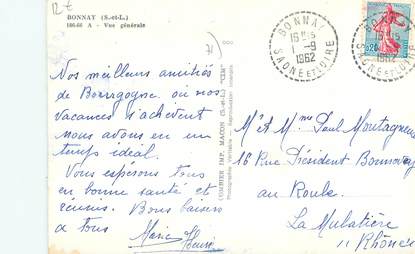 12 €
BONNAY (S.-et-L.)
186-66 A - Vue générale
71
BONNAY
16 H 15
1 -9
1962
SAONE ET LOIRE
BONNAY
1962
SAONE ET LOIRE
0,20
Nos meilleures amitiés
de Bourgogne où nos
vacances s'achèvent
nous avons eu un
temps idéal.
Vous espérons tous
en bonne santé et
réunis. Bons baisers
à tous
Marie
Henri
COMBIER IMP. MACON (S.-et-L.) "CIM"
Photographie Véritable - Reproduction interdite
M et Mme Paul Montagneux
16 Rue Président
au Roule
La Mulatière
Rhône